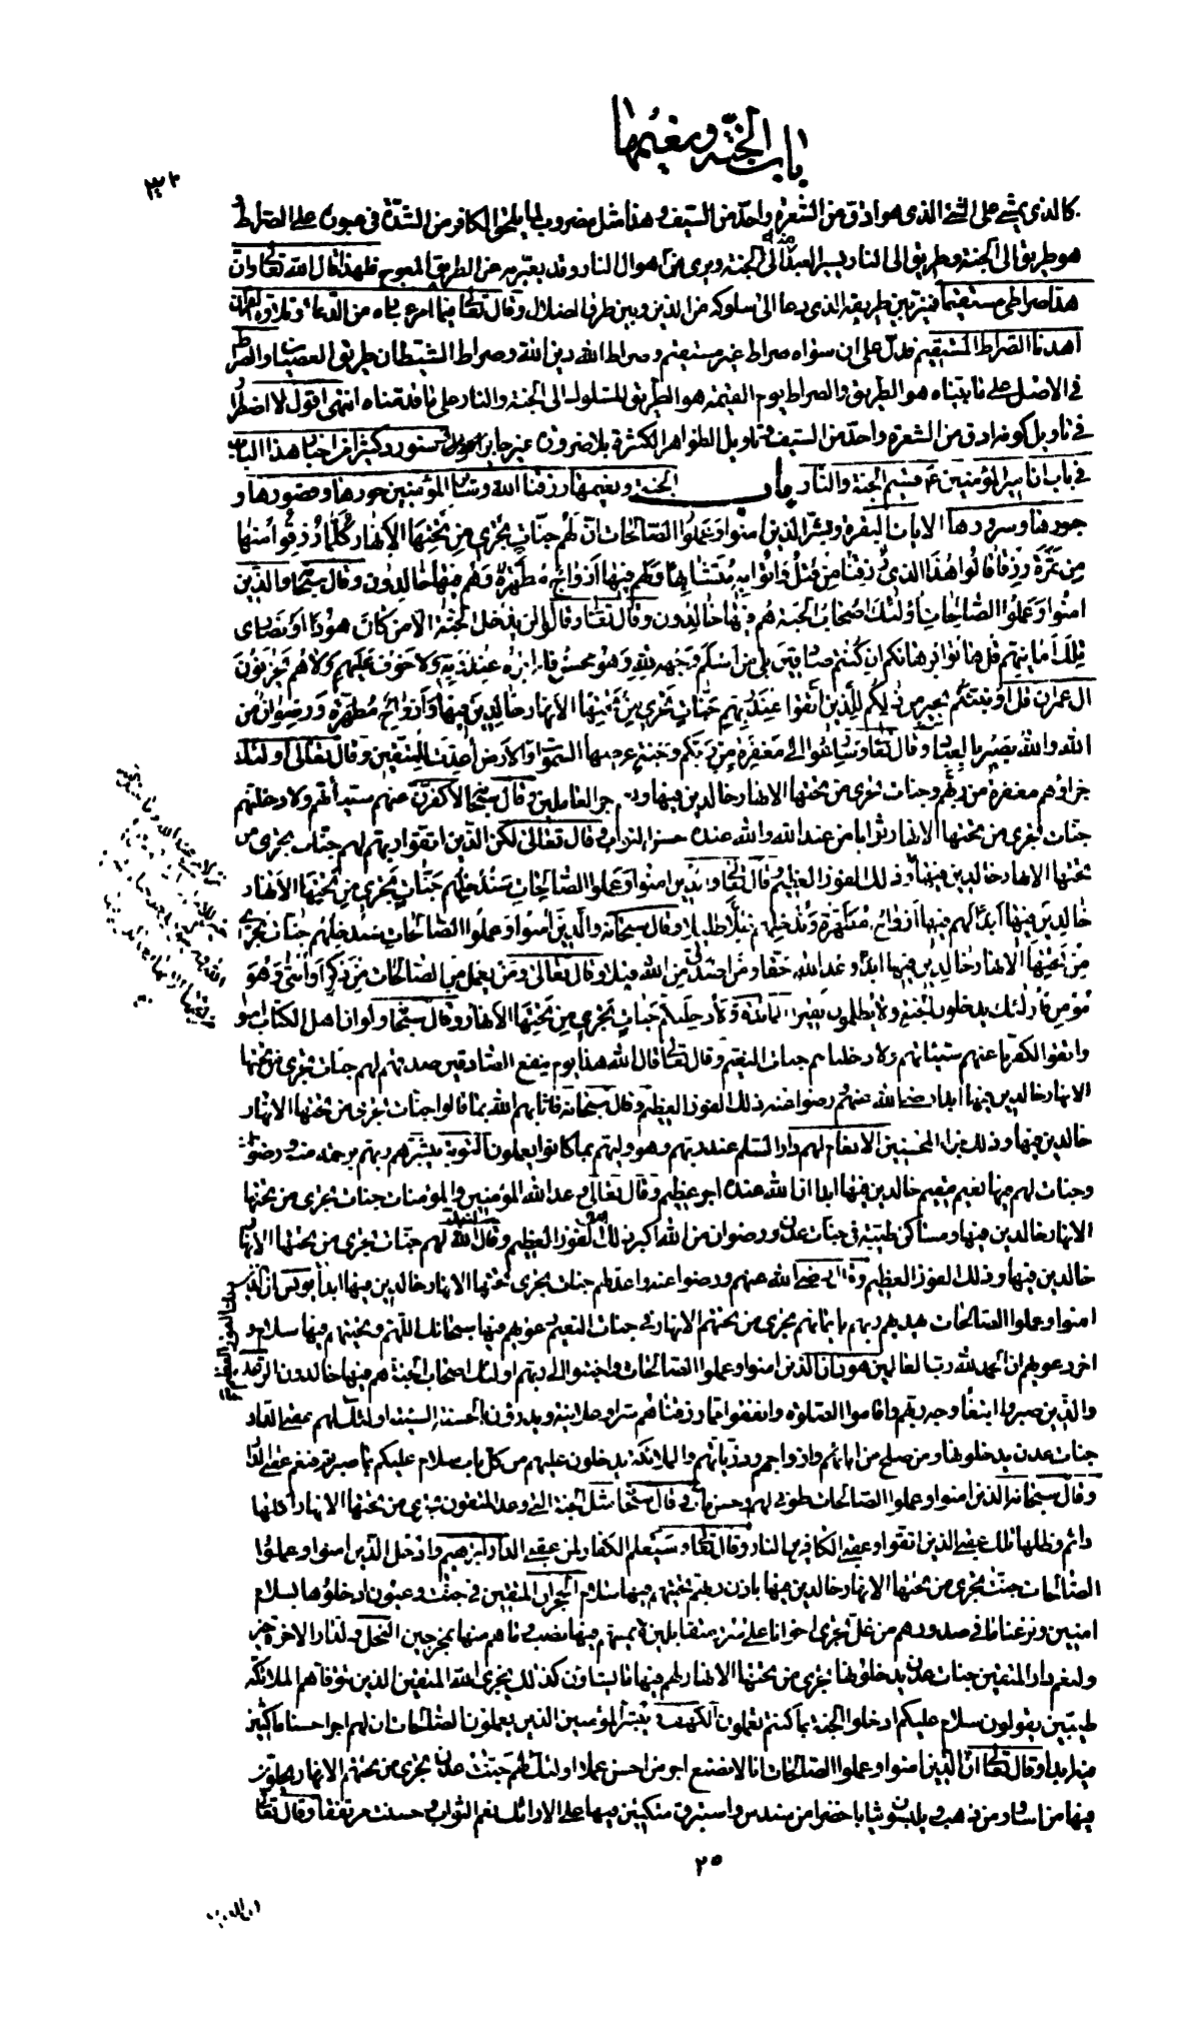 باب الجنة ونعيمها
٣٢
كالذي يمشي على الشيء الذي هو ادق من الشعرة واحد من السيف وهذا مثل مضروب لما يلحق الكافر من الشدة في عبوره على الصراط و
هو طريق الى الجنة وطريق الى النار يسير العبد منه الى الجنة ويرى من اهوال النار وقد يعبر به عن الطريق المعوج فلهذا قال الله تعالى وان
هذا صراطي مستقيما فميز بين طريقه الذي دعا الى سلوكه من الدين وبين طرق الضلال وقال تعالى فيما امر عباده من الدعاء وتلاوة القران
اهدنا الصراط المستقيم فدل على ان سواه صراط غير مستقيم وصراط الله دين الله وصراط الشيطان طريق العصيان والصراط
في الاصل على ما بيناه هو الطريق والصراط يوم القيمة هو الطريق المسلوك الى الجنة والنار على ما قدمناه انتهى اقول لا اضطرار
في تاويل كونه ادق من الشعرة واحد من السيف وتاويل الظواهر الكثيرة بلا ضرورة غير جايز وسنورد كثيرا من اخبار هذا الباب
في باب ان امير المؤمنين ع قسيم الجنة والنار باب الجنة ونعيمها رزقنا الله وساير المؤمنين حورها وقصورها و
حبورها وسرورها الايات البقرة وبشر الذين امنوا وعملوا الصالحات ان لهم جنات تجري من تحتها الانهار كلما رزقوا منها
من ثمرة رزقا قالوا هذا الذي رزقنا من قبل واتوا به متشابها ولهم فيها ازواج مطهرة وهم فيها خالدون وقال سبحانه والذين
امنوا وعملوا الصالحات اولئك اصحاب الجنة هم فيها خالدون وقال تعالى وقالوا لن يدخل الجنة الا من كان هودا او نصارى
تلك امانيهم قل هاتوا برهانكم ان كنتم صادقين بلى من اسلم وجهه لله وهو محسن فله اجره عند ربه ولا خوف عليهم ولا هم يحزنون
ال عمران قل اؤنبئكم بخير من ذلكم للذين اتقوا عند ربهم جنات تجري من تحتها الانهار خالدين فيها وازواج مطهرة ورضوان من
الله والله بصير بالعباد وقال تعالى وسارعوا الى مغفرة من ربكم وجنة عرضها السموات والارض اعدت للمتقين وقال تعالى اولئك
جزاؤهم مغفرة من ربهم وجنات تجري من تحتها الانهار خالدين فيها ونعم اجر العاملين وقال سبحانه لاكفرن عنهم سيئاتهم ولادخلنهم
جنات تجري من تحتها الانهار ثوابا من عند الله والله عنده حسن الثواب وقال تعالى لكن الذين اتقوا ربهم لهم جنات تجري من
تحتها الانهار خالدين فيها وذلك الفوز العظيم وقال تعالى والذين امنوا وعملوا الصالحات سندخلهم جنات تجري من تحتها الانهار
خالدين فيها ابدا لهم فيها ازواج مطهرة وندخلهم ظلا ظليلا وقال سبحانه والذين امنوا وعملوا الصالحات سندخلهم جنات تجري
من تحتها الانهار خالدين فيها ابدا وعد الله حقا ومن اصدق من الله قيلا وقال تعالى ومن يعمل من الصالحات من ذكر او انثى وهو
مؤمن فاولئك يدخلون الجنة ولا يظلمون نقيرا المائدة ولادخلنكم جنات تجري من تحتها الانهار وقال سبحانه ولو ان اهل الكتاب امنوا
واتقوا لكفرنا عنهم سيئاتهم ولادخلناهم جنات النعيم وقال تعالى قال الله هذا يوم ينفع الصادقين صدقهم لهم جنات تجري من تحتها
الانهار خالدين فيها ابدا رضي الله عنهم ورضوا عنه ذلك الفوز العظيم وقال سبحانه فاثابهم الله بما قالوا جنات تجري من تحتها الانهار
خالدين فيها وذلك جزاء المحسنين الانعام لهم دار السلم عند ربهم وهو وليهم بما كانوا يعملون التوبة يبشرهم ربهم برحمة منه ورضوان
وجنات لهم فيها نعيم مقيم خالدين فيها ابدا ان الله عنده اجر عظيم وقال تعالى وعد الله المؤمنين والمؤمنات جنات تجري من تحتها
الانهار خالدين فيها ومساكن طيبة في جنات عدن ورضوان من الله اكبر ذلك هو الفوز العظيم وقال اعد الله لهم جنات تجري من تحتها الانهار
خالدين فيها وذلك الفوز العظيم وقال رضي الله عنهم ورضوا عنه واعد لهم جنات تجري تحتها الانهار خالدين فيها ابدا يونس ان الذين
ذلك الفوز العظيم
امنوا وعملوا الصالحات يهديهم ربهم بايمانهم تجري من تحتهم الانهار في جنات النعيم دعويهم فيها سبحانك اللهم وتحيتهم فيها سلام و
اخر دعويهم ان الحمد لله رب العالمين هود ان الذين امنوا وعملوا الصالحات واخبتوا الى ربهم اولئك اصحاب الجنة هم فيها خالدون الرعد
والذين صبروا ابتغاء وجه ربهم واقاموا الصلوة وانفقوا مما رزقناهم سرا وعلانية ويدرؤن بالحسنة السيئة اولئك لهم عقبى الدار
جنات عدن يدخلونها ومن صلح من ابائهم وازواجهم وذرياتهم والملائكة يدخلون عليهم من كل باب سلام عليكم بما صبرتم فنعم عقبى الدار
وقال سبحانه الذين امنوا وعملوا الصالحات طوبى لهم وحسن ماب وقال سبحانه مثل الجنة التي وعد المتقون تجري من تحتها الانهار اكلها
دائم وظلها تلك عقبى الذين اتقوا وعقبى الكافرين النار وقال تعالى وسيعلم الكفار لمن عقبى الدار ابرهيم وادخل الذين امنوا وعملوا
الصالحات جنات تجري من تحتها الانهار خالدين فيها باذن ربهم تحيتهم فيها سلام الحجر ان المتقين في جنات وعيون ادخلوها بسلام
امنين ونزعنا ما في صدورهم من غل اخوانا على سرر متقابلين لا يمسهم فيها نصب وما هم منها بمخرجين النحل ولدار الاخرة خير
ولنعم دار المتقين جنات عدن يدخلونها تجري من تحتها الانهار لهم فيها ما يشاؤن كذلك يجزي الله المتقين الذين تتوفاهم الملائكة
طيبين يقولون سلام عليكم ادخلوا الجنة بما كنتم تعملون الكهف ويبشر المؤمنين الذين يعملون الصالحات ان لهم اجرا حسنا ماكثين
فيه ابدا وقال تعالى ان الذين امنوا وعملوا الصالحات انا لا نضيع اجر من احسن عملا اولئك لهم جنات عدن تجري من تحتهم الانهار يحلون
فيها من اساور من ذهب ويلبسون ثيابا خضرا من سندس واستبرق متكئين فيها على الارائك نعم الثواب وحسنت مرتفقا وقال تعالى
٢٥